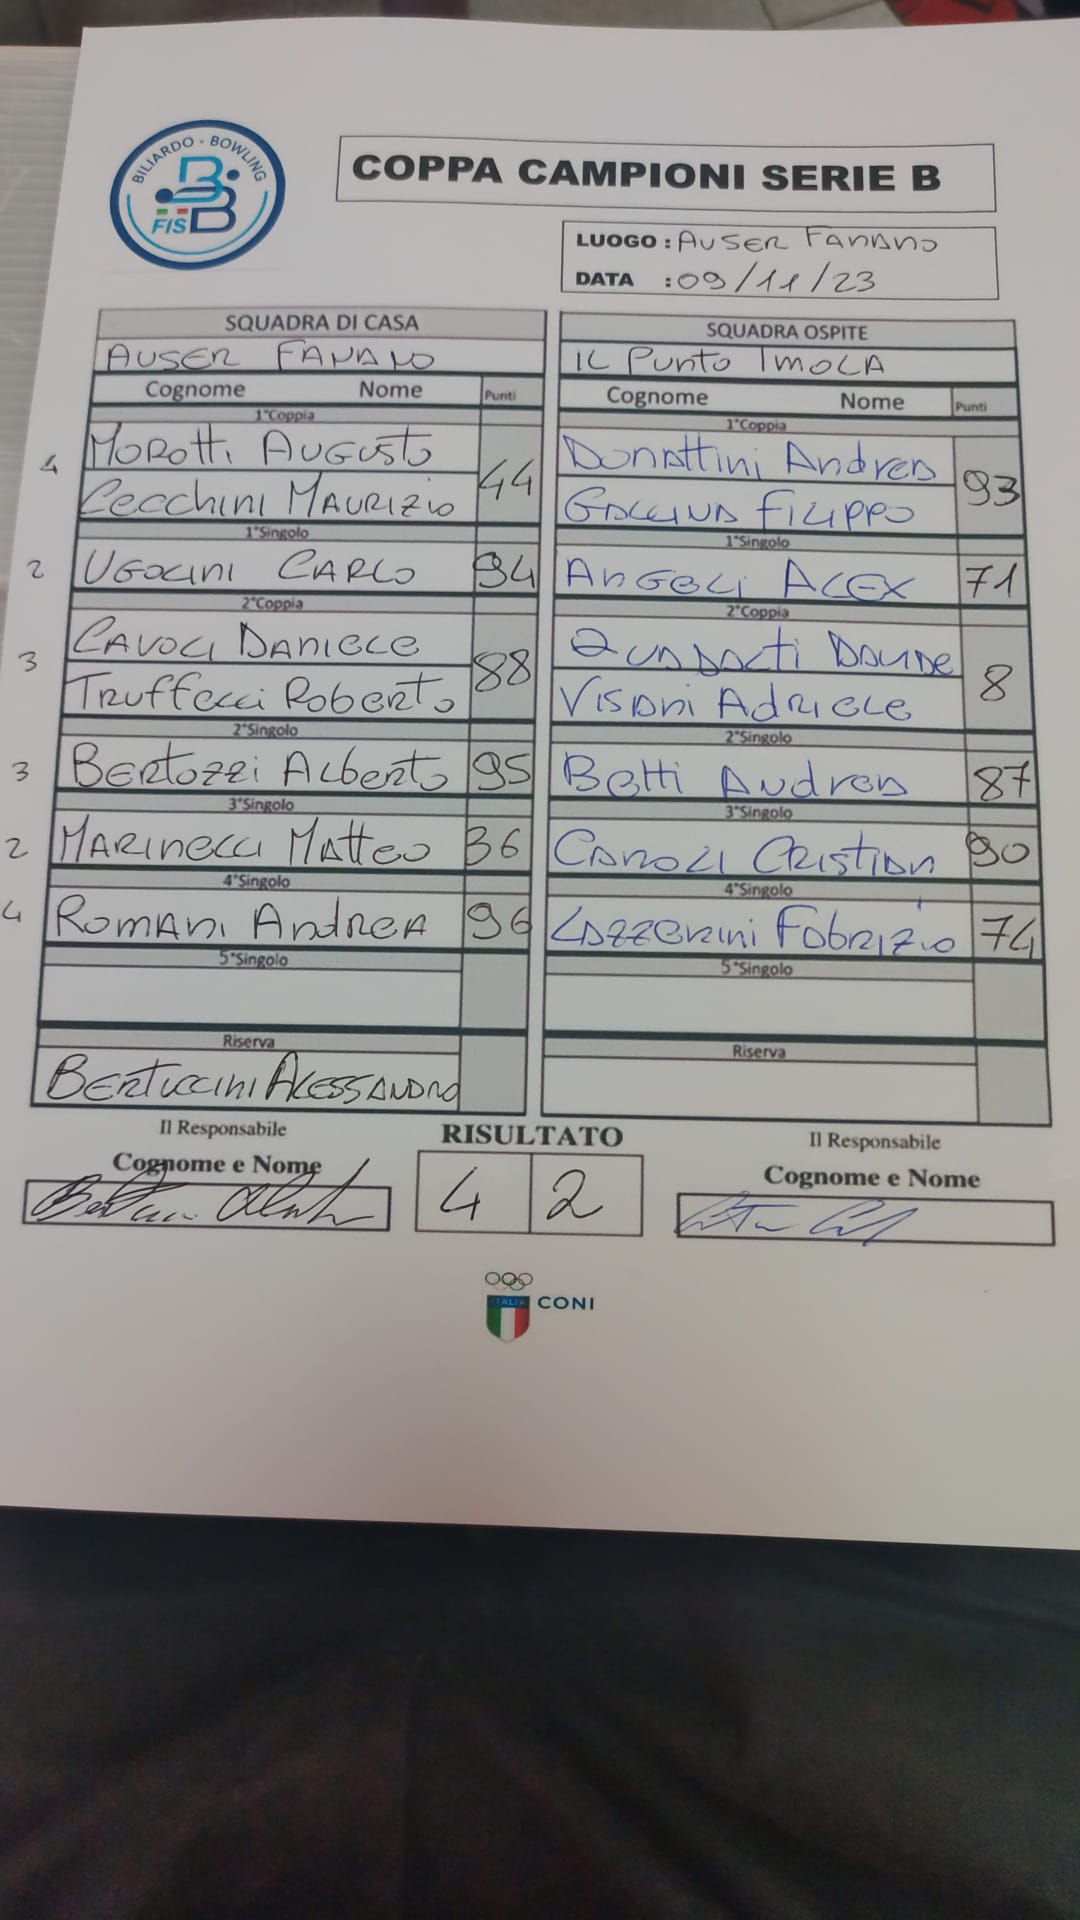 BILIARDO - BOWLING
FISBB
COPPA CAMPIONI SERIE B
LUOGO : AUSER FANANO
DATA : 09/11/23
SQUADRA DI CASA
AUSER FANANO
Cognome Nome Punti
1°Coppia
4 MOROTTI AUGUSTO 44
CECCHINI MAURIZIO
1°Singolo
2 UGOLINI CARLO 94
2°Coppia
3 CAVOLI DANIELE 88
TRUFFELLI ROBERTO
2°Singolo
3 BERTOZZI ALBERTO 95
3°Singolo
2 MARINELLI MATTEO 36
4°Singolo
4 ROMANI ANDREA 96
5°Singolo
Riserva
BERTUCCINI ALESSANDRO
SQUADRA OSPITE
IL PUNTO IMOLA
Cognome Nome Punti
1°Coppia
DONATTINI ANDREA 93
GALLINA FILIPPO
1°Singolo
ANGELI ALEX 71
2°Coppia
DAVIDE 8
VISANI ADRIELE
2°Singolo
BETTI ANDREA 87
3°Singolo
CAROLI CRISTIAN 90
4°Singolo
LAZZERINI FABRIZIO 74
5°Singolo
Riserva
Il Responsabile
Cognome e Nome
RISULTATO
4 2
Il Responsabile
Cognome e Nome
ITALIA
CONI